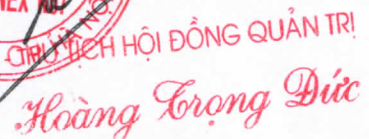 CHỦ TỊCH HỘI ĐỒNG QUẢN TRỊ
Hoàng Trọng Đức